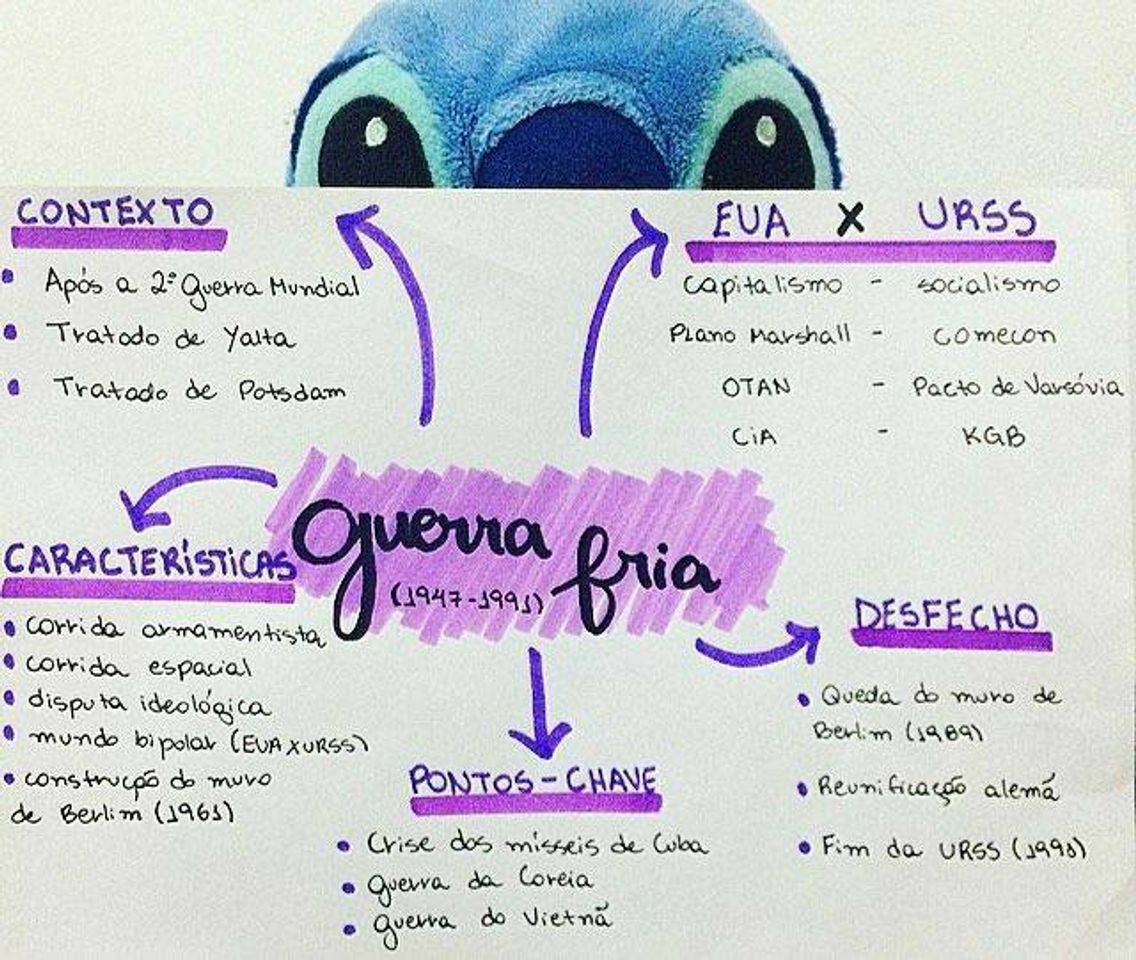 CONTEXTO
• Após a 2ª Guerra Mundial
• Tratado de Yalta
• Tratado de Potsdam
EUA X URSS
capitalismo - socialismo
Plano Marshall - Comecon
OTAN - Pacto de Varsóvia
CIA - KGB
guerra fria
(1947-1991)
CARACTERÍSTICAS
• corrida armamentista
• corrida espacial
• disputa ideológica
• mundo bipolar (EUA X URSS)
• construção do muro
de Berlim (1961)
PONTOS-CHAVE
• Crise dos mísseis de Cuba
• guerra da Coreia
• guerra do Vietnã
DESFECHO
• Queda do muro de
Berlim (1989)
• Reunificação alemã
• Fim da URSS (1991)